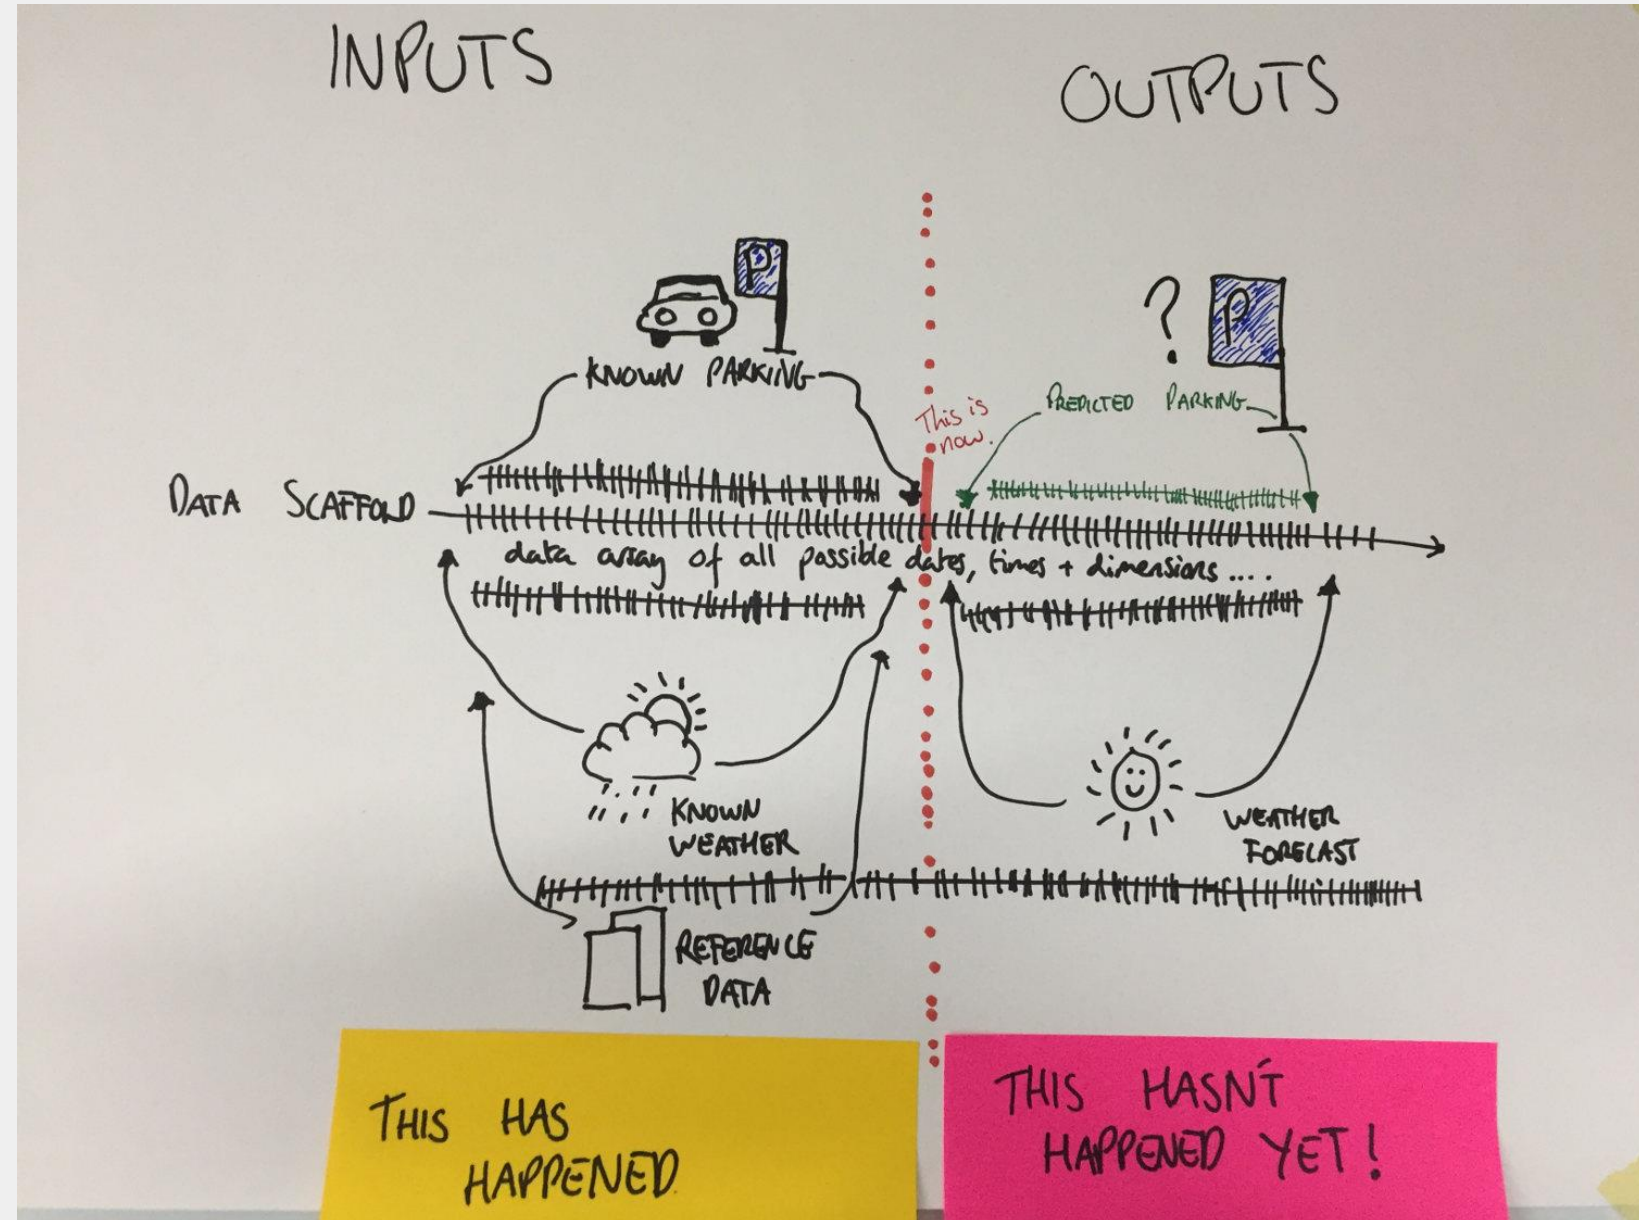 INPUTS
OUTPUTS
P
?
P
KNOWN PARKING
PREDICTED PARKING
This is
now.
DATA SCAFFOLD
data array of all possible dates, times + dimensions ....
KNOWN
WEATHER
WEATHER
FORECAST
REFERENCE
DATA
THIS HAS
HAPPENED
THIS HASN'T
HAPPENED YET!